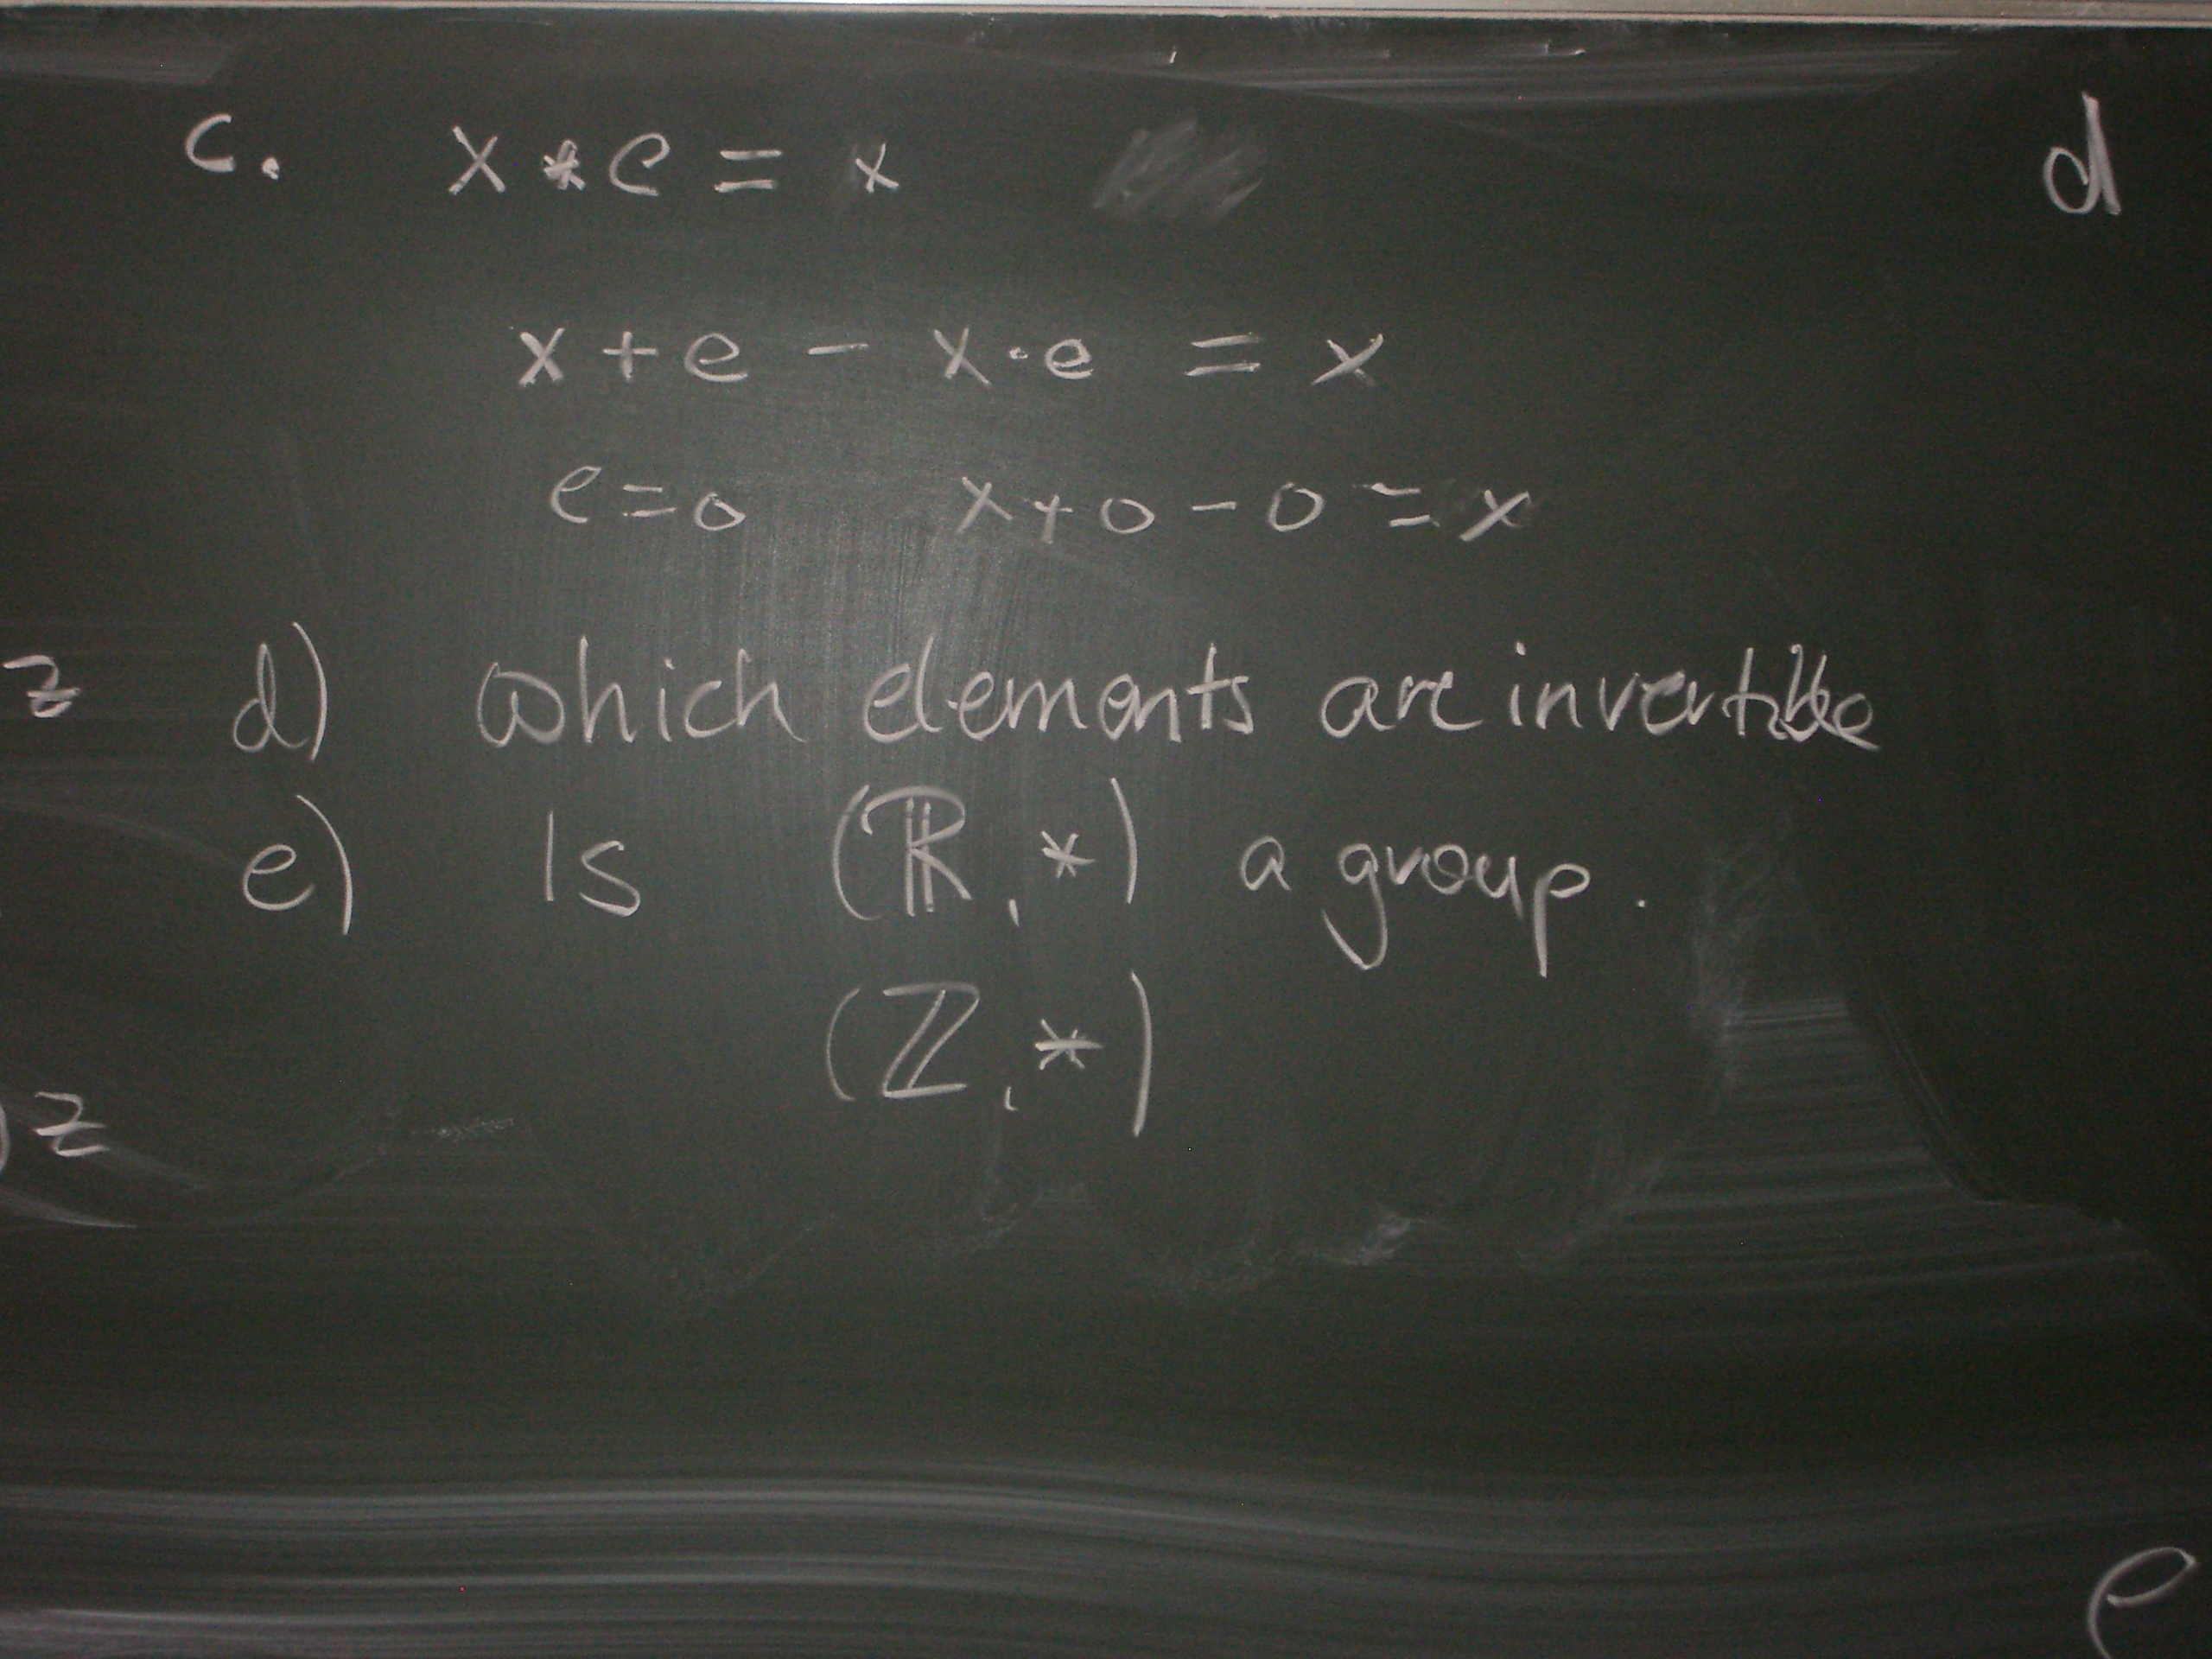 c. x * e = x
d
x + e - x · e = x
e = 0 x + 0 - 0 = x
z
d) which elements are invertible
e) Is (ℝ, *) a group.
(ℤ, *)
) z
e